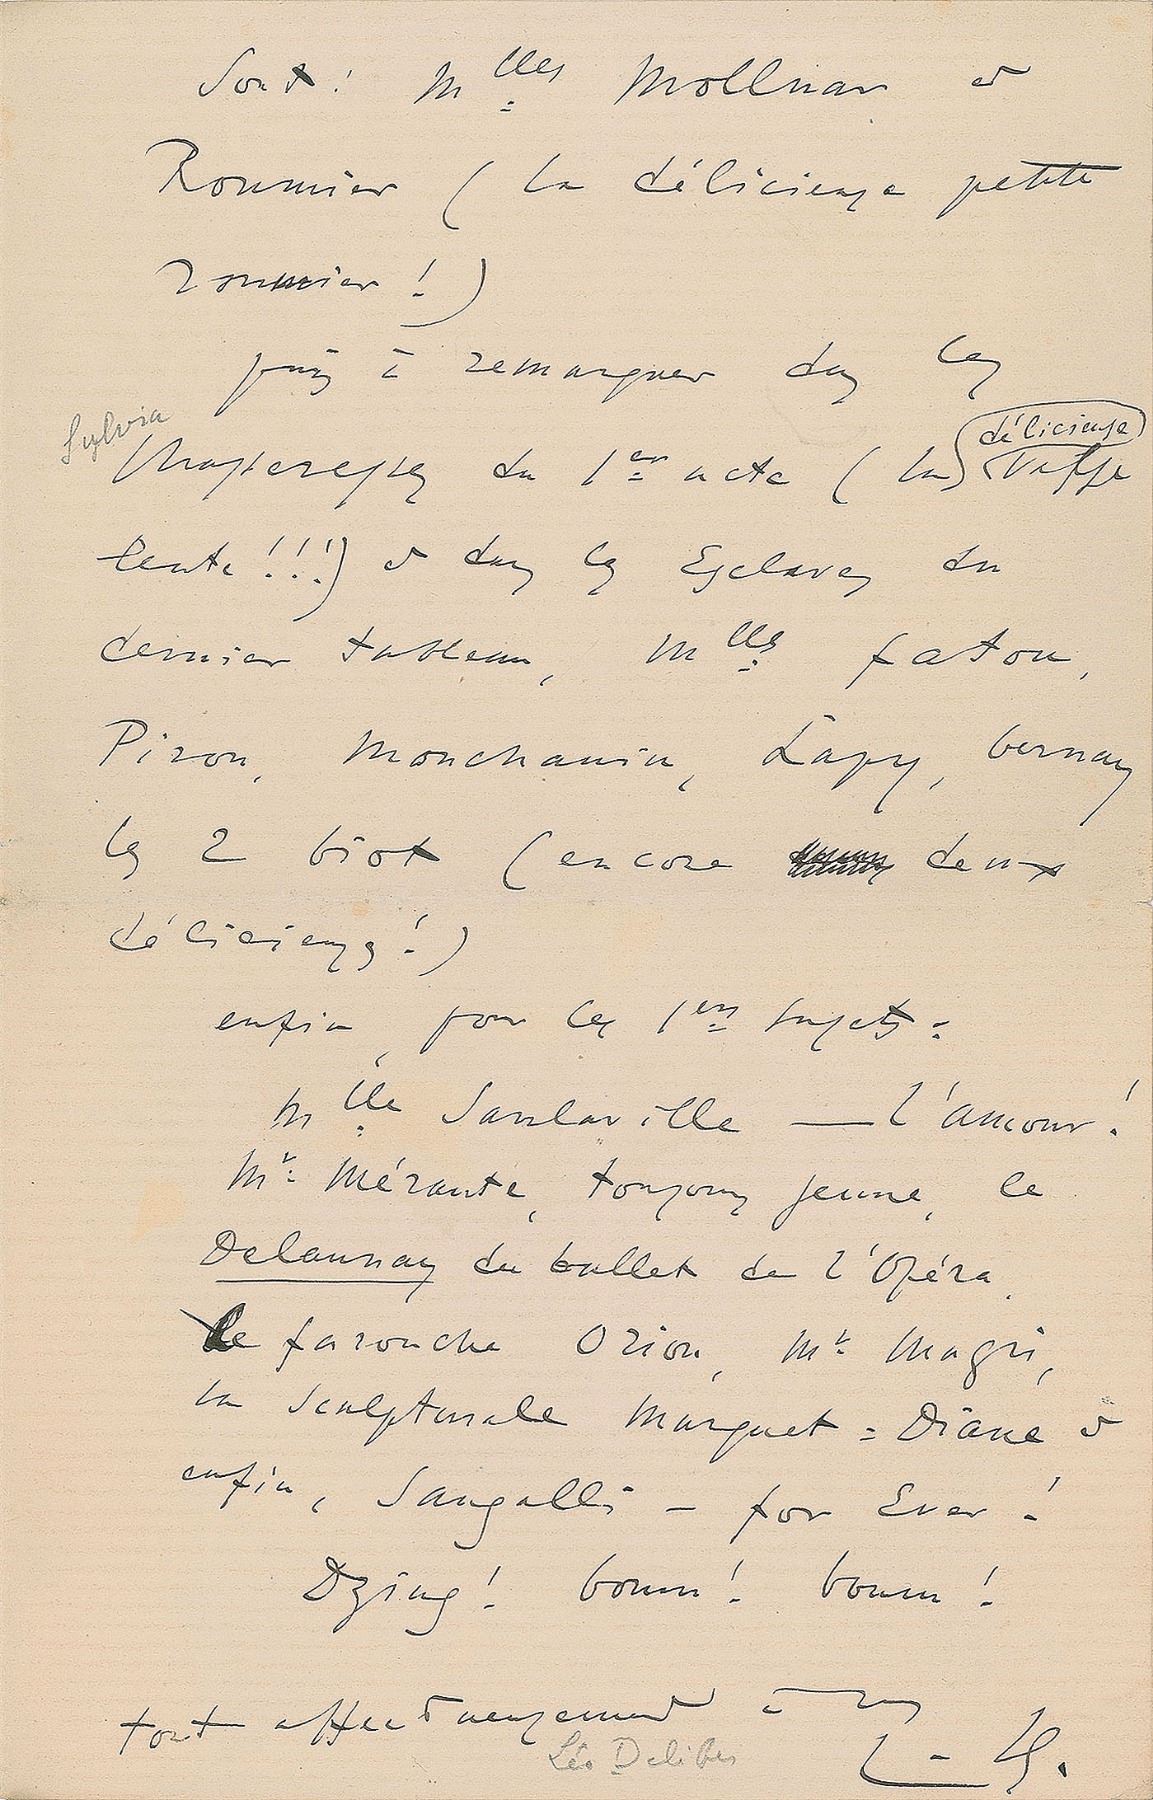 Sont : Mlles Mollnar et
Roumier (la délicieuse petite
roumier !)
puis à remarquer dans les
Sylvia
Chasseresses du 1er acte (la délicieuse Valse
lente !!!) et dans les Esclaves du
dernier tableau, Mlles fatou,
Piron, Monchanin, Lapy, bernay
les 2 biot (encore deux
délicieuses !)
enfin, pour les 1ers Sujets :
Mlle Sanlaville — l'amour !
Mr Mérante, toujours jeune, le
Delaunay du ballet de l'Opéra,
Le farouche Orion, Mr Magri,
la sculpturale Marquet = Diane et
enfin, Sangalli - for Ever !
Dzing ! boum ! boum !
tout affectueusement à vous
Léo Delibes
L - D.